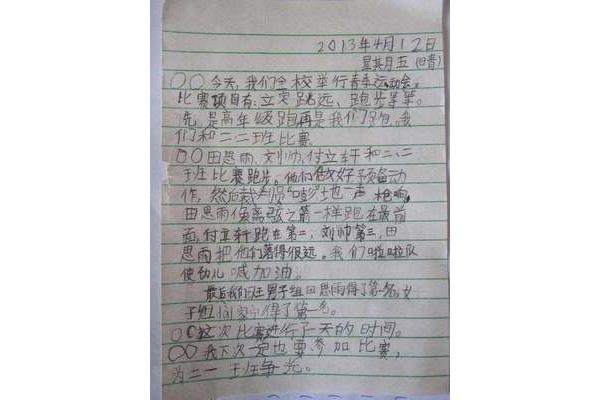 2013年4月12日
星其月五(日音)
○○今天,我们全校举行春季运动会。
比赛项目有:立定跳远、跑步等等。
先是高年级跑再是我们跑。我
们和二、二班比赛
○○田思雨、刘帅、付立轩和二、二
班比赛跑步。他们做好预备动
作,然后裁判员"嘭"地一声枪响,
田思雨像离弦之箭一样跑在最前
面,付立轩跑在第二,刘帅第三,田
思雨把他们落得很远。我们啦啦队
使劲儿喊加油。
最后我们班男子组田思雨得了第一名,女
子组闫家宁得了第一名。
○○这次比赛进行了一天的时间。
○○我下次一定也要参加比赛,
为二一班争光。